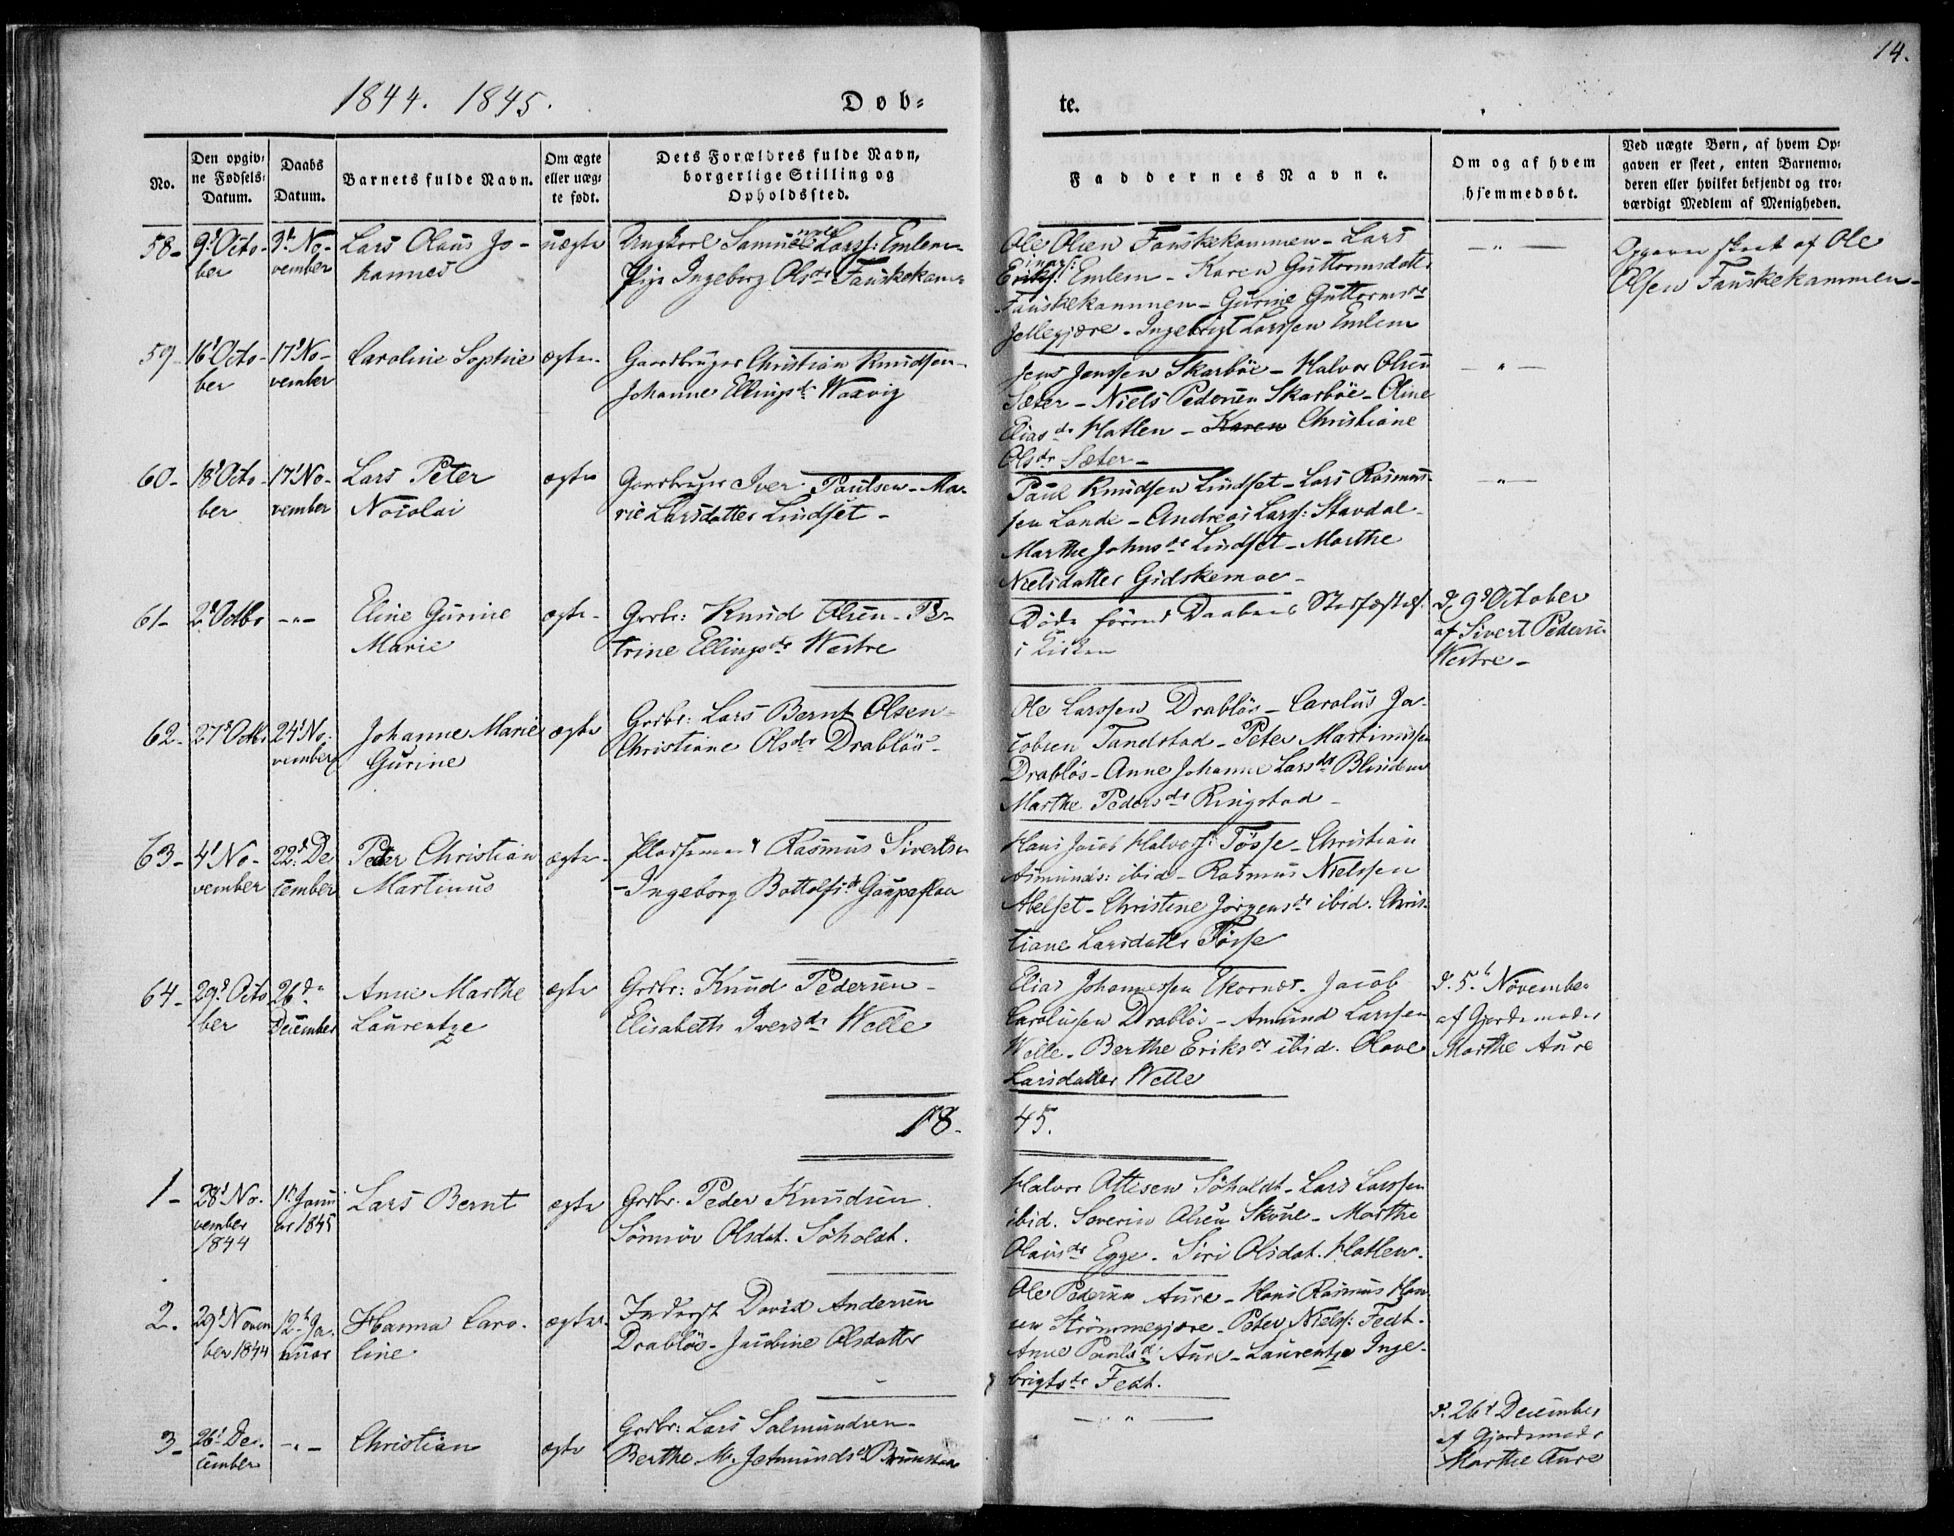 14.
1844. 1845.
Døb-
te.
No.
Den opgiv-
ne Fødsels-
Datum.
Daabs
Datum.
Barnets fulde Navn.
Om ægte
eller uæg-
te født.
Dets Forældres fulde Navn,
borgerlige Stilling og
Opholdssted.
Faddernes Navne.
Om og af hvem
hjemmedøbt.
Ved uægte Børn, af hvem Op-
gaven er skeet, enten Barnemo-
deren eller hvilket bekjendt og tro-
værdigt Medlem af Menigheden.
58-
9d Octo-
ber
3d No-
vember
Lars Olaus Jo-
hannes
uægte
Ungkarl Samuel Larss: Emlem-
Pige Ingeborg Olsdr Fauskekam-
Ole Olsen Fauskekammen - Lars
Emlem - Karen Guttormsdatt
Fauskekammen - Gurine Guttormsdr
Jellegjære - Ingebrigt Larssen Emlem
- " -
Opgaven skeet af Ole
Olsen Fauskekammen -
59-
16d Octo-
ber
17d No-
vember
Caroline Sophie
ægte-
Gaardbruger Christian Knudsen-
Johanne Ellingsdr Waxvig
Jens Janssen Skarbøe - Halvor Olsen
Sæter - Niels Pedersen Skarbøe - Oline
Eliasdr Hatlen - Karen Christiane
Olsdr Sæter -
- " -
60-
18d Octo-
ber
17d No-
vember
Lars Peter
Nicolai
ægte
Gaardbruger Iver Paulsen - Ma-
rie Larsdatter Lindset -
Paul Knudsen Lindset - Lars Rasmus-
sen Lande - Andreas Larss: Stavdal -
Marthe Johnsdr Lindset - Marthe
Nielsdatter Gidskemoe -
- " -
61-
2d Octbr
- " -
Eline Gurine
Marie
ægte-
Grdbr: Knud Olsen - Pe-
trine Ellingsdr Westre
Døde førend Daabens Stadfæstels:
i Kirken
d. 9d October
af Sivert Pedersen
Westre -
62-
27d Octbr
24d No-
vember
Johanne Marie
Gurine
ægte
Grdbr: Lars Bernt Olsen -
Christiane Olsdr Drabløs -
Ole Larssen Drabløs - Carolus Ja-
cobsen Tandstad - Peter Martinussen
Drabløs - Anne Johanne Larsdr Blindem
Marthe Pedersdr Ringstad -
63-
4d No-
vember
22d De-
cember
Peter Christian
Martinus
ægte-
Pladsemand Rasmus Sivertsen
- Ingeborg Bottolfsdr Gaupeflaa
Hans Jacob Halvors: Fosse - Christian
Asmunds: ibid - Rasmus Nielssen
Abelset - Christine Jørgensdr ibid. Chris-
tiane Larsdatter Fosse
64-
29d Octo
ber
26de
December
Anne Marthe
Laurentze
ægte
Grdbr: Knud Pedersen -
Elisabeth Iversdr Welle
Elias Johannessen Ekornes - Jacob
Carolussen Drabløs - Amund Larssen
Welle - Berthe Eriksdr ibid. Olave
Larsdatter Welle
d. 5d November
af Gjordemoder
Marthe Aure
18-
45.
1-
28d No-
vember
1844
1d Janu
ar 1845
Lars Bernt
ægte
Grdbr. Peder Knudsen
Sønnøv Olsdat. Søholdt.
Halvor Ottesen Søholdt - Lars Larssen
ibid. Severin Olsen Skoue - Marthe
Olausdr Egge - Siri Olsdat. Hatlen -
2.
29d Novem
ber 1844
12d Ja-
nuar
Hanna Caro-
line
ægte
Inderst David Andersen
Drabløs - Jacobine Olsdatter
Ole Pedersen Aure - Hans Rasmus Han
sen Strømmegjære - Peter Niels: Fedt -
Anne Paulsd. Aure - Laurentze Inge-
brigtsdr Fedt.
3-
26d De-
cember
- " -
Christian
ægte
Grdbr: Lars Salmundsen -
Berthe M. Jetmundsdr Brunstad
- " -
d. 26d December
af Gjordemoder
Marthe Aure